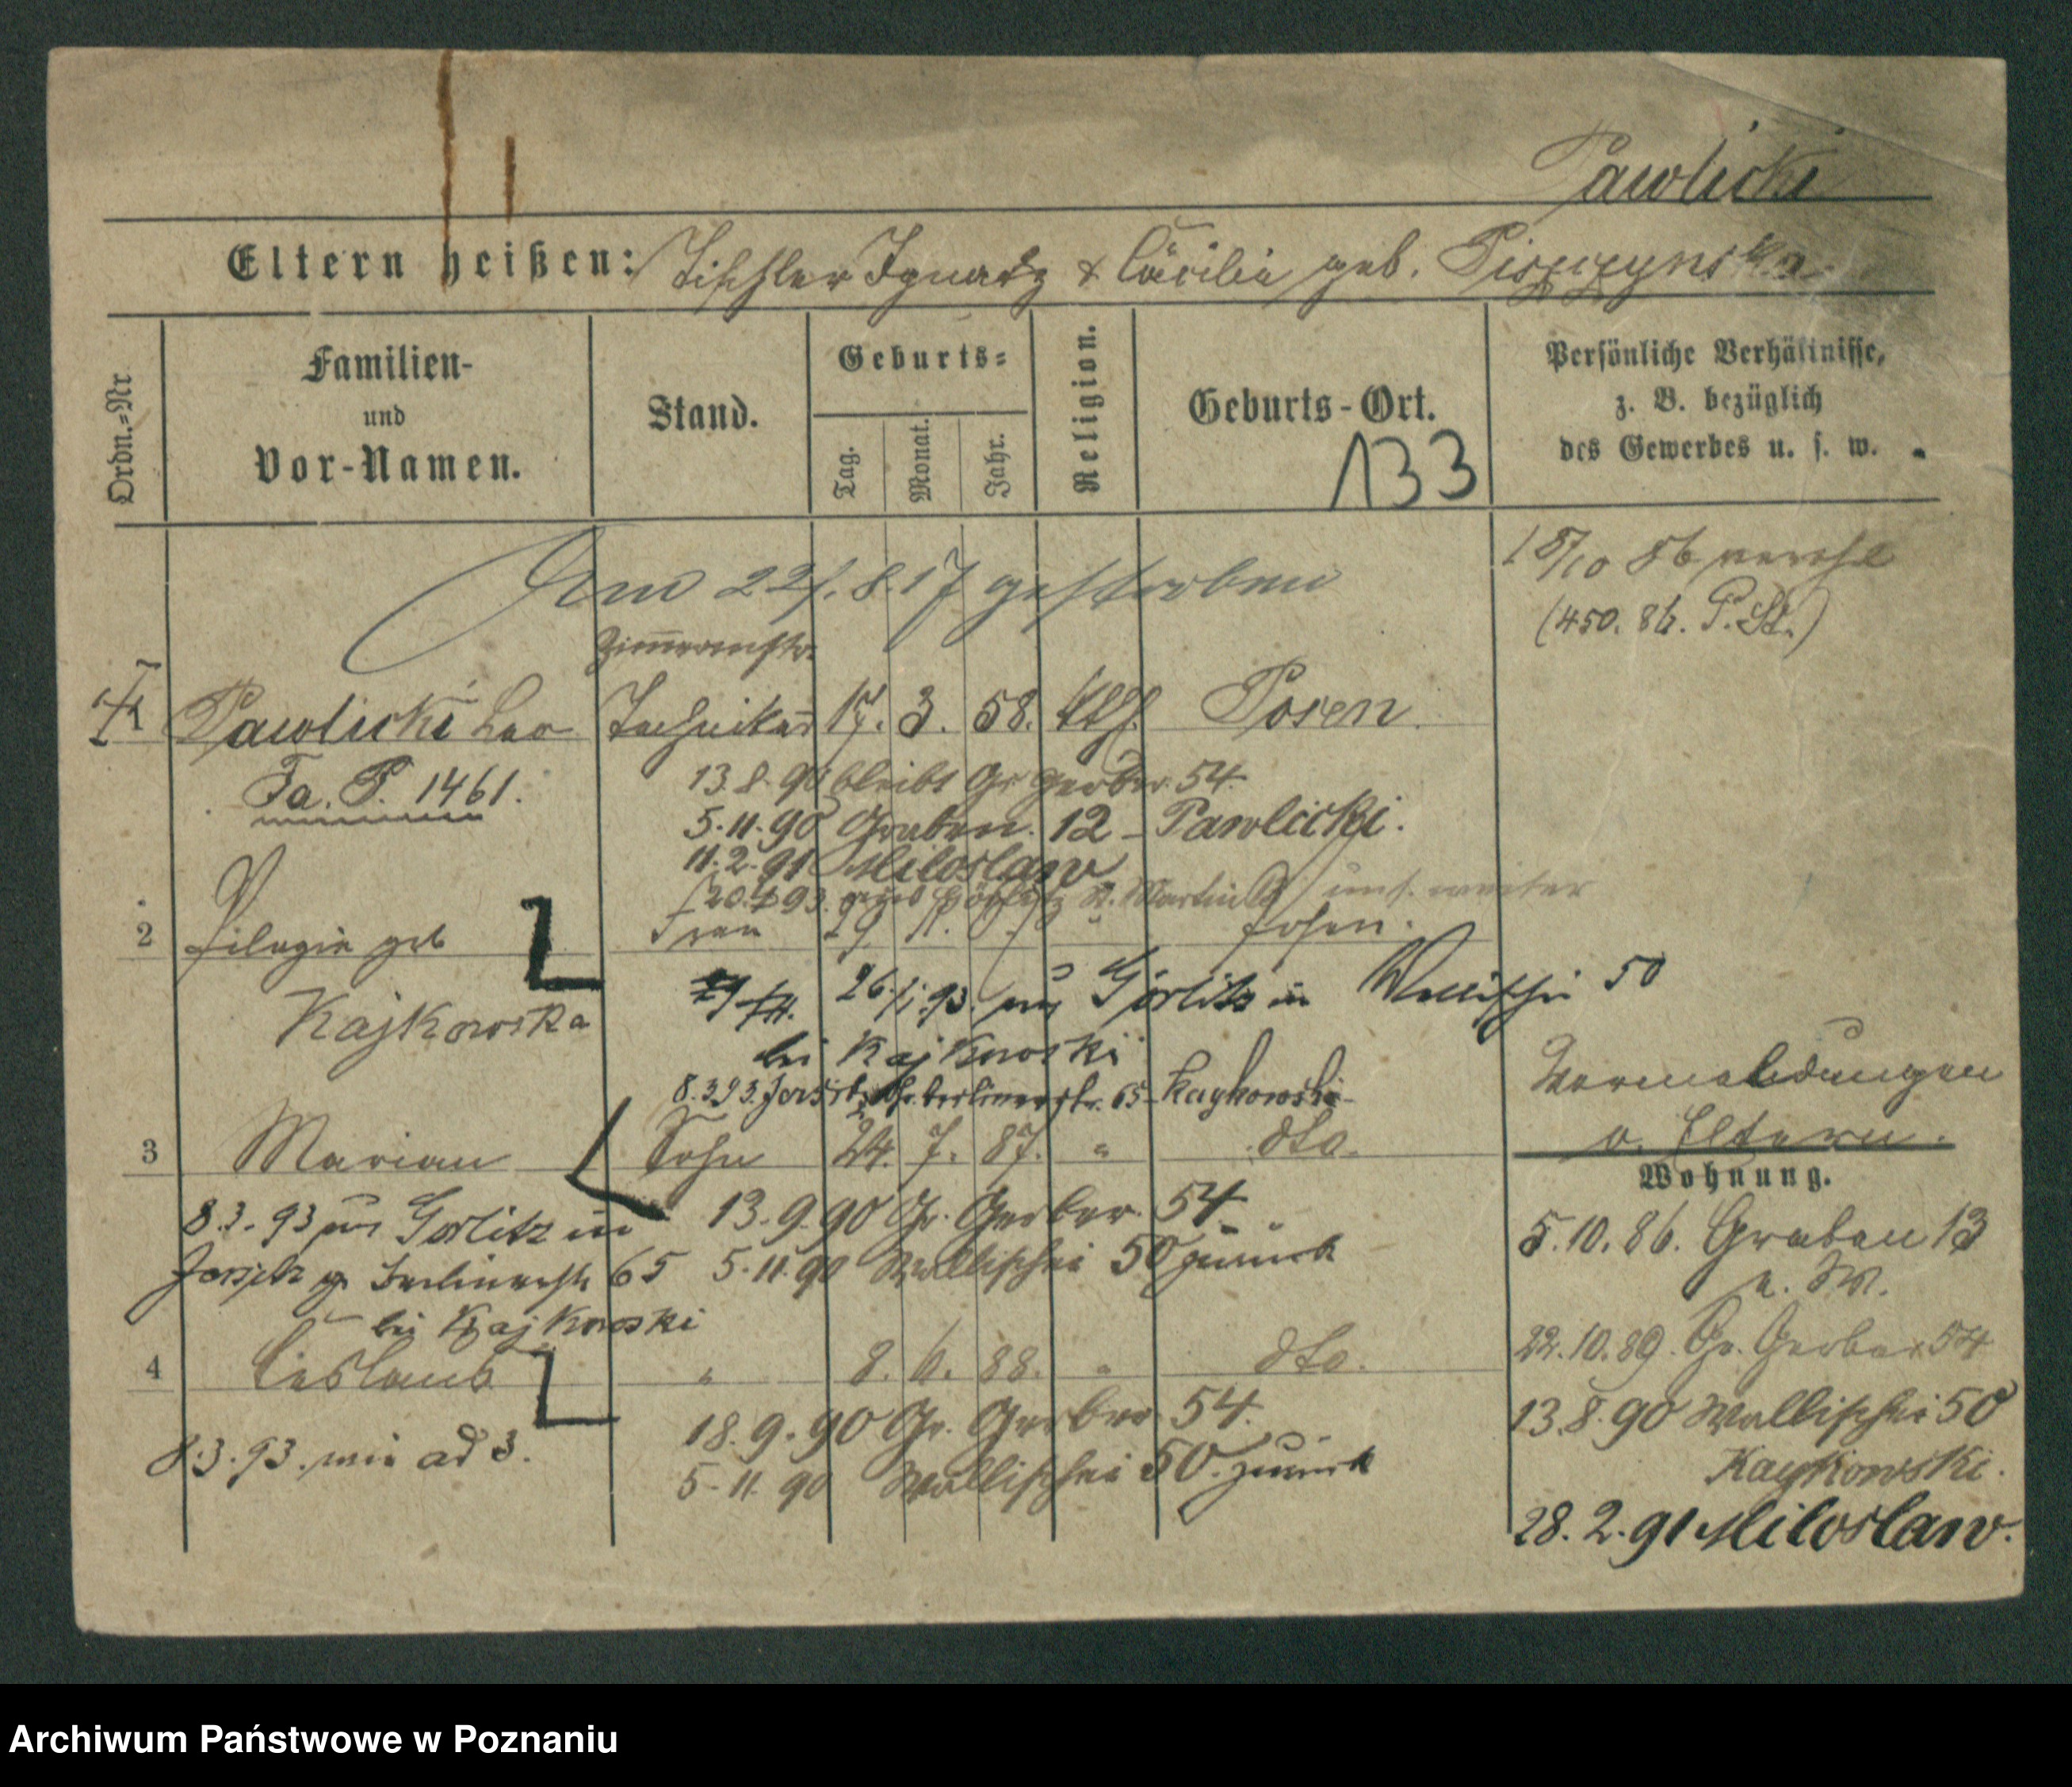 Pawlicki
Eltern heißen: Tischler Ignatz & Cäcilie geb.
Ordn.=Nr.
Familien-
und
Vor-Namen.
Stand.
Geburts=
Tag.
Monat.
Jahr.
Religion.
Geburts-Ort.
133
Persönliche Verhältnisse,
z. B. bezüglich
des Gewerbes u. s. w.
Am 22/. 8. 17 gestorben
(450. 86. P. St.)
Zimmermstr.
1 Pawlicki Leo Techniker 17. 3. 58. kth. Posen
Fa. P. 1461.
13.8.90 bleibt Gr Gerber 54.
5.11.90 Graben. 12 - Pawlicki.
11.2.91 Miloslaw
2 Pelagia geb Frau Posen.
Kajkowska
26/1.93. aus Görlitz in Wallischei 50
bei Kajkowski
8.3.93. Jersitz, Gr. Berlinerstr. 65 - Kaykowski
Vermeldungen
v. Eltern.
3 Marian Sohn 24. 7. 87. " dto.
8.3.93 aus Görlitz in
Jersitz gr Berlinerstr 65
bei Kajkowski
13.9.90 Gr. Gerber. 54.
5.11.90 Wallischei 50 zurück
4 Ceslaus " 8. 6. 88. " dto.
8.3.93. wie ad 3.
18.9.90 Gr. Gerber 54.
5-11.90 Wallischei 50. zurück
Wohnung.
5.10.86. Graben 13
22.10.89. Gr. Gerber 54
13.8.90 Wallischei 50
Kaykowski.
28.2.91 Miloslaw.
Archiwum Państwowe w Poznaniu